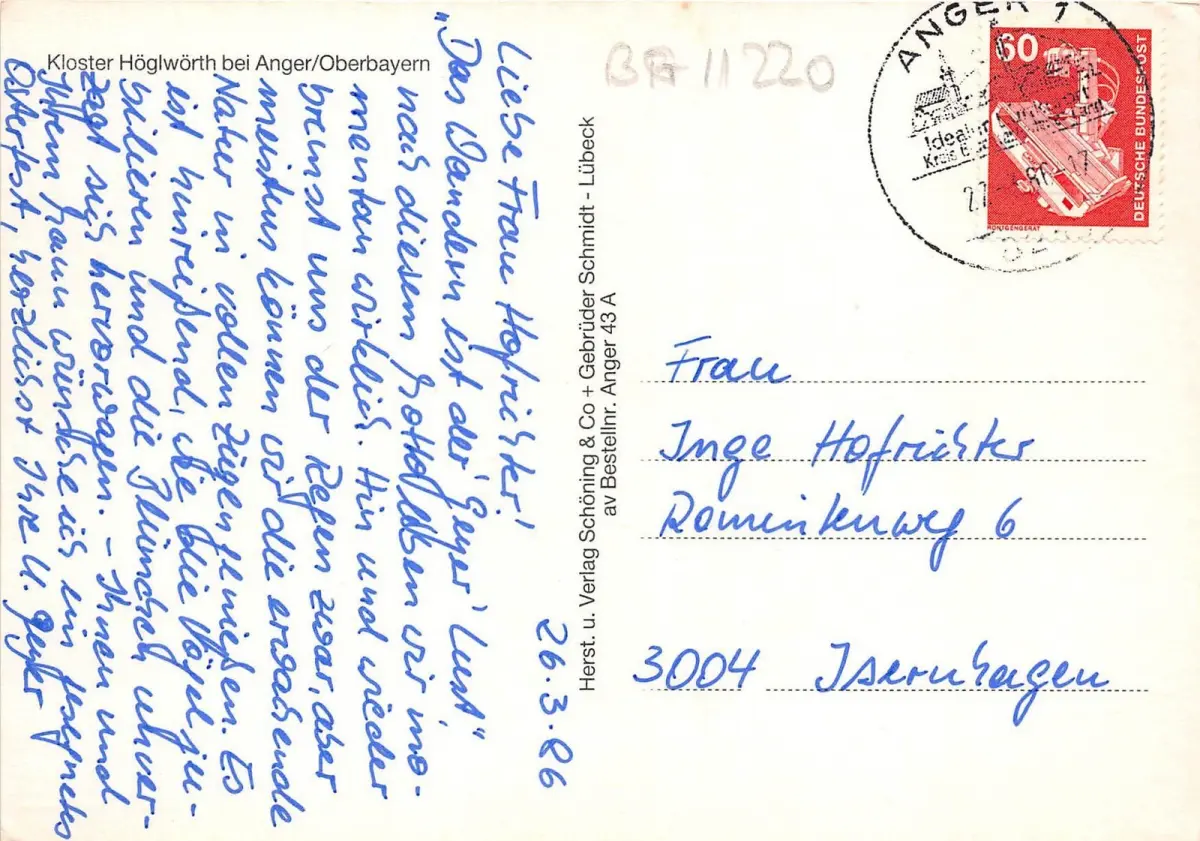 Kloster Höglwörth bei Anger/Oberbayern
26.3.86
Liebe Frau Hofrichter!
"Das Wandern ist der 'Geyer' Lust"
nach diesem Motto leben wir mo-
mentan wirklich. Hin und wieder
bremst uns der Regen zwar, aber
meistens können wir die erwachende
Natur in vollen Zügen genießen. Es
ist hinreißend, wie die Vögel ju-
bilieren und die Blümchen unver-
zagt sich hervorwagen. – Ihnen und
Ihrem Mann wünsche ich ein gesegnetes
Osterfest, herzlichst Ihre U. Geyer
Herst. u. Verlag Schöning & Co + Gebrüder Schmidt - Lübeck
av Bestellnr. Anger 43 A
BG 11220
ANGER 1
Idealer
Kreis
60
DEUTSCHE BUNDESPOST
RÖNTGENGERÄT
Frau
Inge Hofrichter
6
3004 Isernhagen